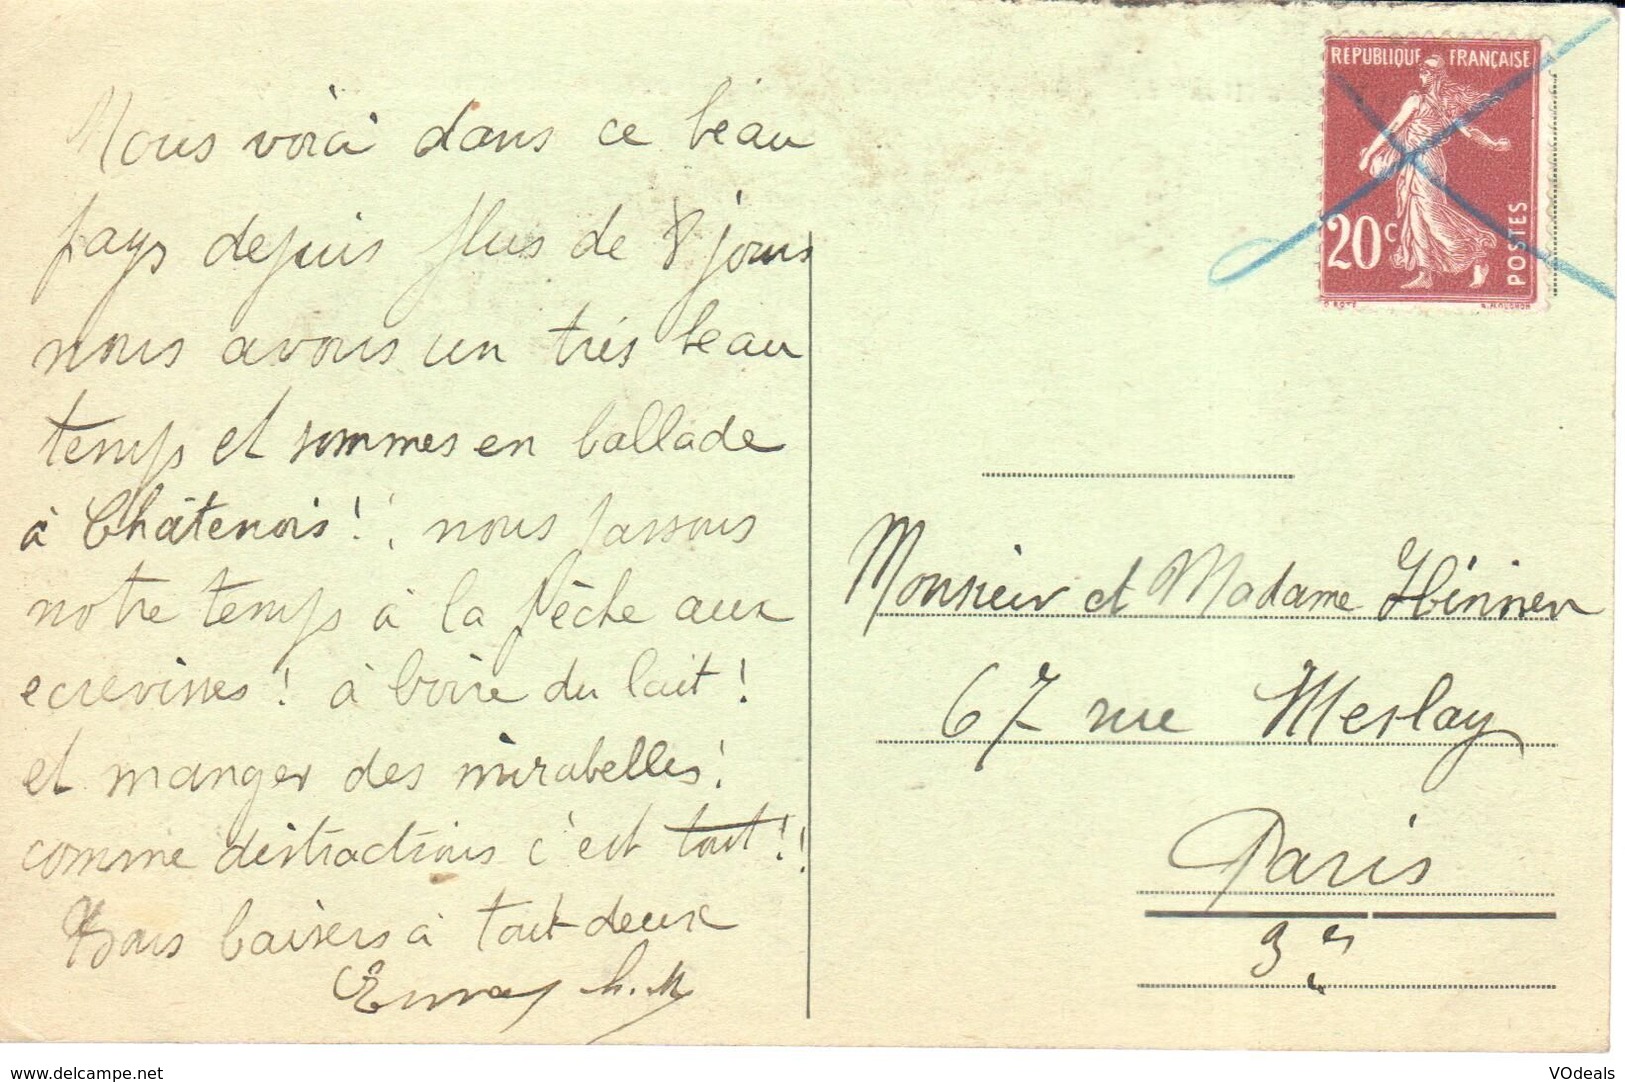 Nous voici dans ce beau
pays depuis plus de 8 jours
nous avons un très beau
temps et sommes en ballade
à Châtenois! ; nous passons
notre temps à la pêche aux
ecrevisses! à boire du lait!
et manger des mirabelles!
comme distractions c'est tout!!
Bons baisers à tout deux
REPUBLIQUE FRANÇAISE
20c
POSTES
Monsieur et Madame
67 rue Meslay
Paris
3e
www.delcampe.net
VOdeals